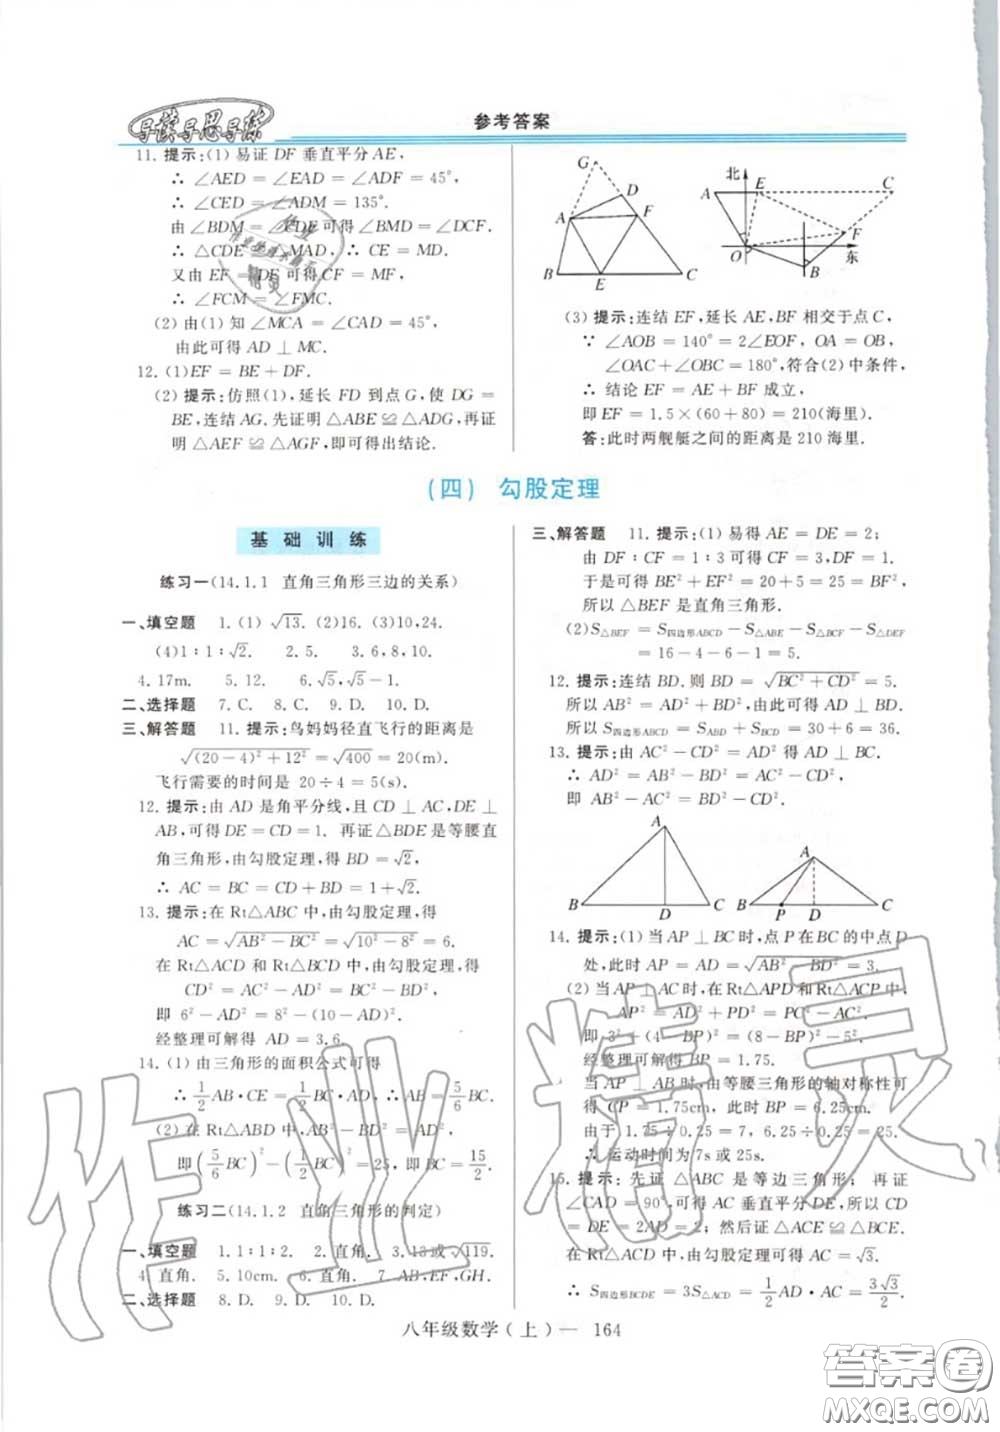 导读导思导练
参考答案
11. 提示:(1) 易证 DF 垂直平分 AE,
∴ ∠AED = ∠EAD = ∠ADF = 45°,
∴ ∠CED = ∠ADM = 135°.
由 ∠BDM = ∠CDE 可得 ∠BMD = ∠DCF.
∴ △CDE ≌ △MAD, ∴ CE = MD.
又由 EF = DE 可得 CF = MF,
∴ ∠FCM = ∠FMC.
(2) 由(1) 知 ∠MCA = ∠CAD = 45°,
由此可得 AD ⊥ MC.
12. (1)EF = BE + DF.
(2) 提示:仿照(1),延长 FD 到点 G, 使 DG =
BE,连结 AG. 先证明 △ABE ≌ △ADG,再证
明 △AEF ≌ △AGF,即可得出结论.
G
A
D
F
B
E
C
北
A
E
C
F
O
东
B
(3) 提示:连结 EF,延长 AE,BF 相交于点 C,
∵ ∠AOB = 140° = 2∠EOF, OA = OB,
∠OAC + ∠OBC = 180°,符合(2) 中条件,
∴ 结论 EF = AE + BF 成立,
即 EF = 1.5 × (60 + 80) = 210(海里).
答:此时两舰艇之间的距离是 210 海里.
(四) 勾股定理
基 础 训 练
练习一(14.1.1 直角三角形三边的关系)
一、填空题 1. (1) √13. (2)16. (3)10,24.
(4)1 : 1 : √2. 2. 5. 3. 6,8,10.
4. 17m. 5. 12. 6. √5, √5 − 1.
二、选择题 7. C. 8. C. 9. D. 10. D.
三、解答题 11. 提示:鸟妈妈径直飞行的距离是
√((20 − 4)² + 12²) = √400 = 20(m).
飞行需要的时间是 20 ÷ 4 = 5(s).
12. 提示:由 AD 是角平分线,且 CD ⊥ AC,DE ⊥
AB,可得 DE = CD = 1. 再证 △BDE 是等腰直
角三角形,由勾股定理,得 BD = √2,
∴ AC = BC = CD + BD = 1 + √2.
13. 提示:在 Rt△ABC 中,由勾股定理,得
AC = √(AB² − BC²) = √(10² − 8²) = 6.
在 Rt△ACD 和 Rt△BCD 中,由勾股定理,得
CD² = AC² − AD² = BC² − BD²,
即 6² − AD² = 8² − (10 − AD)².
经整理可解得 AD = 3.6.
14. (1) 由三角形的面积公式可得
∴ 1/2 AB · CE = 1/2 BC · AD, ∴ AB = 5/6 BC.
(2) 在 Rt△ABD 中,AB² − BD² = AD²,
即 (5/6 BC)² − (1/2 BC)² = 25,即 BC = 15/2.
练习二(14.1.2 直角三角形的判定)
一、填空题 1. 1 : 1 : 2. 2. 直角. 3. 13 或 √119.
4. 直角. 5. 10cm. 6. 直角. 7. AB,EF,GH.
二、选择题 8. D. 9. D. 10. D.
三、解答题 11. 提示:(1) 易得 AE = DE = 2;
由 DF : CF = 1 : 3 可得 CF = 3,DF = 1.
于是可得 BE² + EF² = 20 + 5 = 25 = BF²,
所以 △BEF 是直角三角形.
(2)S△BEF = S四边形ABCD − S△ABE − S△BCF − S△DEF
= 16 − 4 − 6 − 1 = 5.
12. 提示:连结 BD. 则 BD = √(BC² + CD²) = 5.
所以 AB² = AD² + BD²,由此可得 AD ⊥ BD.
所以 S四边形ABCD = S△ABD + S△BCD = 30 + 6 = 36.
13. 提示:由 AC² − CD² = AD² 得 AD ⊥ BC.
∴ AD² = AB² − BD² = AC² − CD²,
即 AB² − AC² = BD² − CD².
A
B
D
C
A
B
P
D
C
14. 提示:(1) 当 AP ⊥ BC 时,点 P 在 BC 的中点 D
处,此时 AP = AD = √(AB² − BD²) = 3.
(2) 当 AP ⊥ AC 时,在 Rt△APD 和 Rt△ACP 中,
AP² = AD² + PD² = PC² − AC²,
即 3² + (4 − BP)² = (8 − BP)² − 5².
经整理可解得 BP = 1.75.
当 AP ⊥ AB 时,由等腰三角形的轴对称性可
得 CP = 1.75cm, 此时 BP = 6.25cm.
由于 1.75 ÷ 0.25 = 7, 6.25 ÷ 0.25 = 25.
∴ 运动时间为 7s 或 25s.
15. 提示: 先证 △ABC 是等边三角形; 再证
∠CAD = 90°,可得 AC 垂直平分 DE,所以 CD
= DE = 2AD = 2; 然后证 △ACD ≌ △BCE.
在 Rt△ACD 中,由勾股定理可得 AC = √3.
∴ S四边形BCDE = 3S△ACD = 1/2 AD · AC = 3√3/2.
八年级数学(上) — 164
作业精灵
答案卷
MXQE.COM